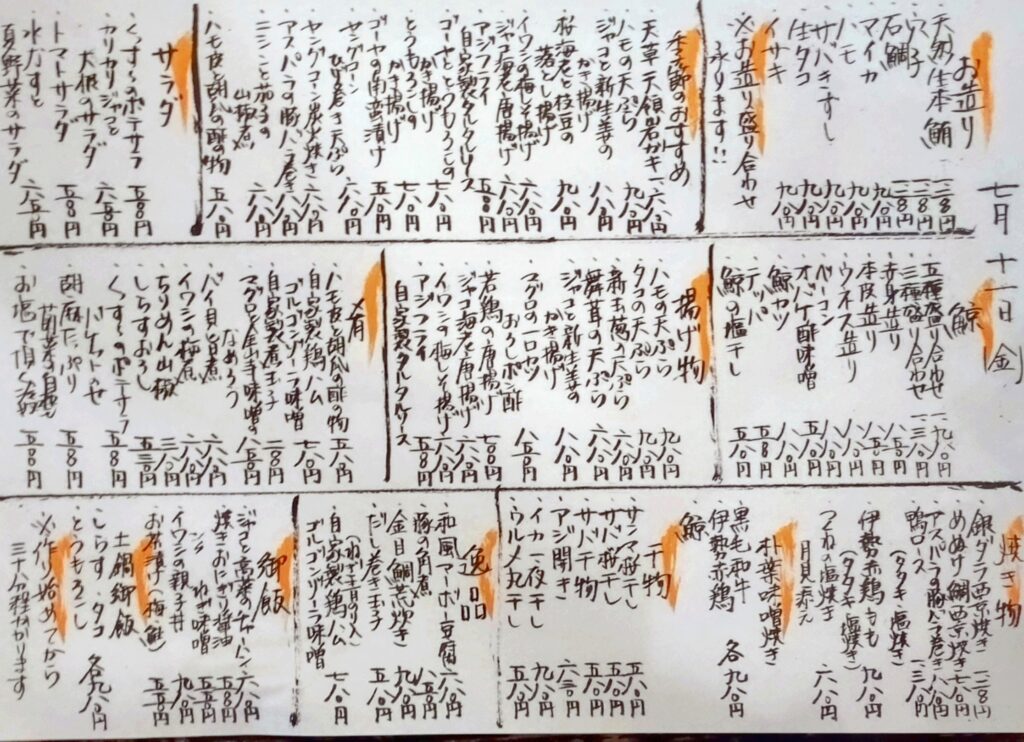 七月十一日 金
お造り
天然生本鮪 一二八〇円
穴子 一二八〇円
石鯛 一二八〇円
マイカ 九八〇円
ハモ 九八〇円
サバきずし 九八〇円
生タコ 九八〇円
イサキ 九八〇円
※お造り盛り合わせ
承ります!!
季節のおすすめ
天草天領岩ガキ
ハモの天ぷら 九八〇円
ジャコと新生姜の
かき揚げ 八八〇円
桜海老と枝豆の
落とし揚げ 九八〇円
イワシの梅しそ揚げ 六八〇円
ジャコ海老唐揚げ 八八〇円
アジフライ
自家製タルタルソース 五八〇円
ゴーヤととうもろこしの
かき揚げ 七八〇円
とうもろこしの
かき揚げ 七八〇円
ゴーヤの南蛮漬け 五八〇円
ヤングコーン
ひげ巻き天ぷら 六八〇円
ヤングコーン炭火焼き 六八〇円
アスパラの豚バラ巻き
ニシンと茄子の
山椒煮
ハモ皮と胡瓜の酢の物 五八〇円
サラダ
くずし〜のポテサラ 五八〇円
カリカリジャコと
大根のサラダ 六八〇円
トマトサラダ 五八〇円
水ナスと
夏野菜のサラダ 六八〇円
鯨
五種盛り合わせ
三種盛り合わせ
赤身造り
本皮造り
ウネス造り
ベーコン
オバケ酢味噌
鯨カツ
テッパ
鯨の塩干し
揚げ物
ハモの天ぷら 九八〇円
タコの天ぷら 九八〇円
新玉葱の天ぷら 六八〇円
舞茸の天ぷら 六八〇円
ジャコと新生姜の
かき揚げ 八八〇円
マグロの一口カツ
おろしポン酢 八五〇円
若鶏の唐揚げ 七八〇円
ジャコ海老唐揚げ 八八〇円
イワシの梅しそ揚げ 六八〇円
アジフライ
自家製タルタルソース 五八〇円
肴
ハモ皮と胡瓜の酢の物 五八〇円
自家製鶏ハム
ゴルゴンゾーラ味噌 七八〇円
自家製煮玉子 二八〇円
マグロと金山寺味噌
なめろう 八五〇円
バイ貝旨煮 六八〇円
イワシの梅煮 六八〇円
ちりめん山椒 三八〇円
しらすおろし 五三〇円
くずし〜のポテサラ
バゲットのせ 五八〇円
胡麻たっぷり 五八〇円
お塩で頂く 五八〇円
焼き物
銀ダラ西京焼き 一二八〇円
めぬけ鯛西京焼き 一七八〇円
アスパラの豚バラ巻き
鴨ロース
(タタキ 塩焼き) 一三八〇円
伊勢赤鶏もも
(タタキ 塩焼き) 九八〇円
つくねの塩焼き
月見添え 六八〇円
朴葉味噌焼き
黒毛和牛
伊勢赤鶏
鯨 各九八〇円
干物
サンマ桜干し 五八〇円
サバ桜干し 五八〇円
サバ干物 五八〇円
アジ開き 六三〇円
イカ一夜干し 九八〇円
ウルメ丸干し 五八〇円
逸品
和風マーボー豆腐
豚の角煮 八五〇円
金目鯛荒炊き 九八〇円
だし巻き玉子
(ねぎ青のり入) 五八〇円
自家製鶏ハム
ゴルゴンゾーラ味噌 七八〇円
御飯
ジャコと高菜のチャーハン 六八〇円
焼きおにぎり醤油 五五〇円
〃 ねぎ味噌 五五〇円
イワシの親子丼 九八〇円
お茶漬け(梅・鮭) 五五〇円
土鍋御飯
しらす・タコ
とうもろこし 各九八〇円
※作り始めてから
三十分程かかります